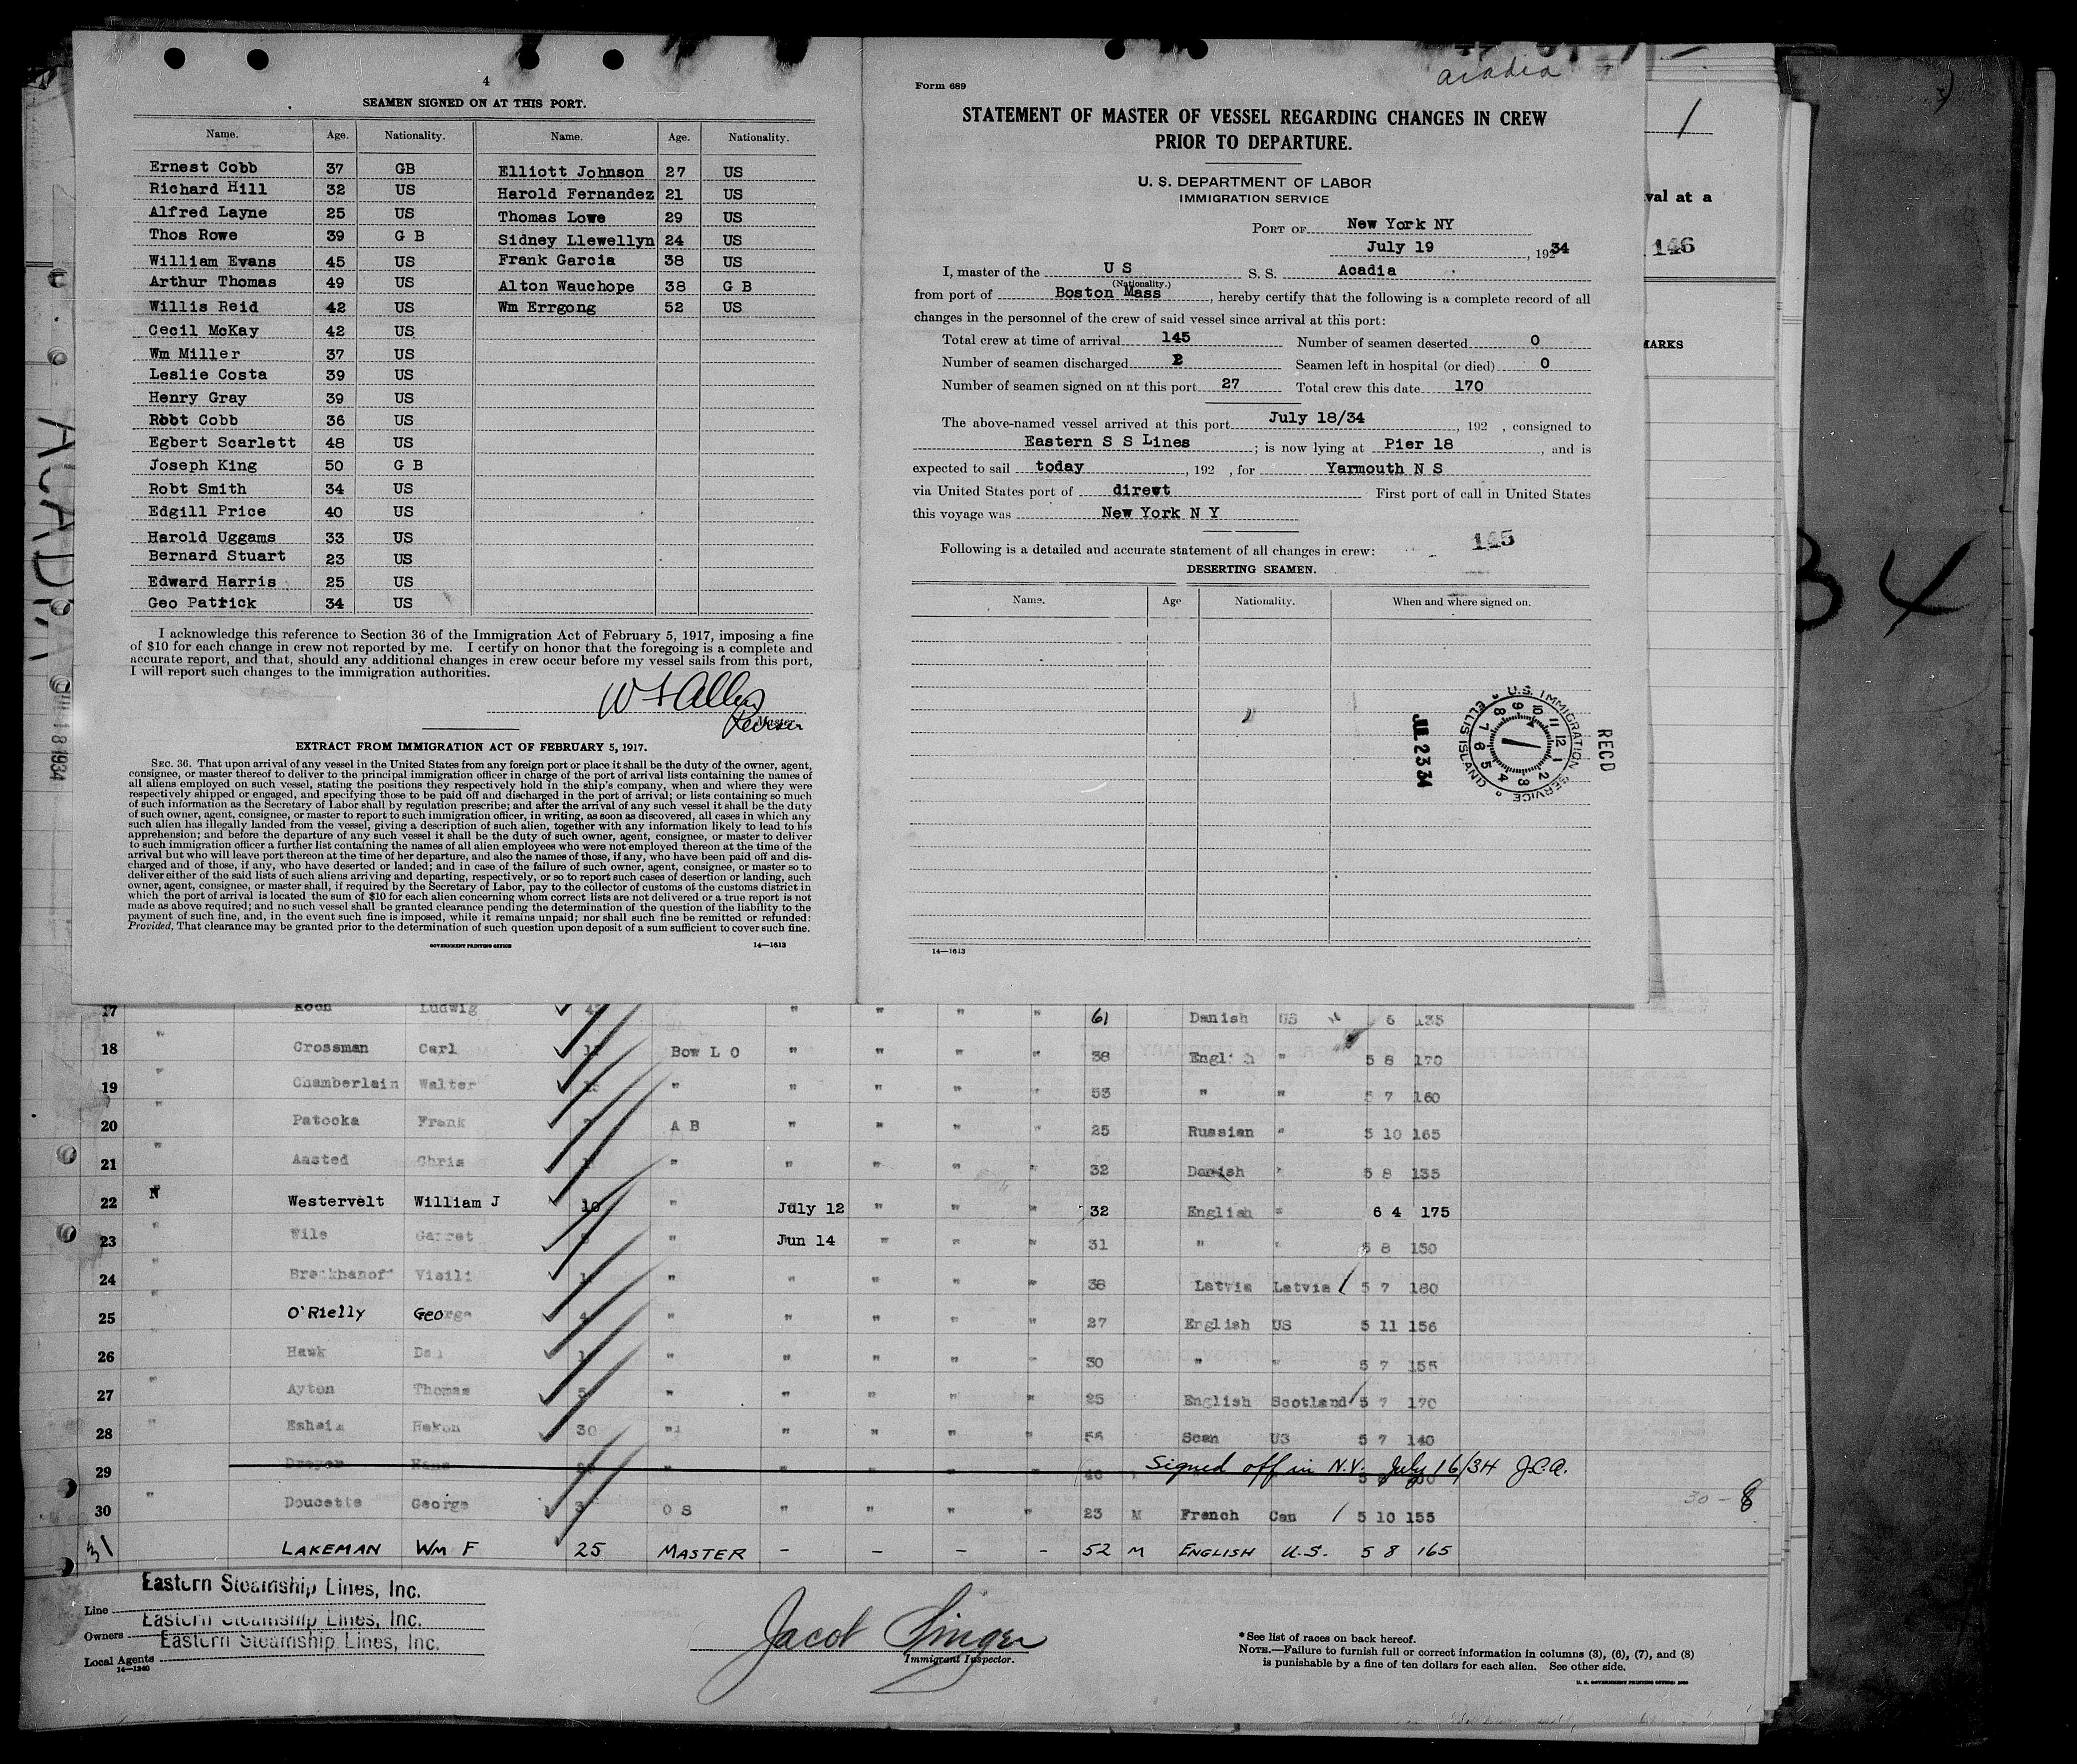 4
SEAMEN SIGNED ON AT THIS PORT.
Name. Age. Nationality. Name. Age. Nationality.
Ernest Cobb 37 GB Elliott Johnson 27 US
Richard Hill 32 US Harold Fernandez 21 US
Alfred Layne 25 US Thomas Lowe 29 US
Thos Rowe 39 G B Sidney Llewellyn 24 US
William Evans 45 US Frank Garcia 38 US
Arthur Thomas 49 US Alton Wauchope 38 G B
Willis Reid 42 US Wm Errgong 52 US
Cecil McKay 42 US
Wm Miller 37 US
Leslie Costa 39 US
Henry Gray 39 US
Robt Cobb 36 US
Egbert Scarlett 48 US
Joseph King 50 G B
Robt Smith 34 US
Edgill Price 40 US
Harold Uggams 33 US
Bernard Stuart 23 US
Edward Harris 25 US
Geo Patrick 34 US
I acknowledge this reference to Section 36 of the Immigration Act of February 5, 1917, imposing a fine
of $10 for each change in crew not reported by me. I certify on honor that the foregoing is a complete and
accurate report, and that, should any additional changes in crew occur before my vessel sails from this port,
I will report such changes to the immigration authorities.
Master.
EXTRACT FROM IMMIGRATION ACT OF FEBRUARY 5, 1917.
SEC. 36. That upon arrival of any vessel in the United States from any foreign port or place it shall be the duty of the owner, agent,
consignee, or master thereof to deliver to the principal immigration officer in charge of the port of arrival lists containing the names of
all aliens employed on such vessel, stating the positions they respectively hold in the ship's company, when and where they were
respectively shipped or engaged, and specifying those to be paid off and discharged in the port of arrival; or lists containing so much
of such information as the Secretary of Labor shall by regulation prescribe; and after the arrival of any such vessel it shall be the duty
of such owner, agent, consignee, or master to report to such immigration officer, in writing, as soon as discovered, all cases in which any
such alien has illegally landed from the vessel, giving a description of such alien, together with any information likely to lead to his
apprehension; and before the departure of any such vessel it shall be the duty of such owner, agent, consignee, or master to deliver
to such immigration officer a further list containing the names of all alien employees who were not employed thereon at the time of the
arrival but who will leave port thereon at the time of her departure, and also the names of those, if any, who have been paid off and dis-
charged and of those, if any, who have deserted or landed; and in case of the failure of such owner, agent, consignee, or master so to
deliver either of the said lists of such aliens arriving and departing, respectively, or so to report such cases of desertion or landing, such
owner, agent, consignee, or master shall, if required by the Secretary of Labor, pay to the collector of customs of the customs district in
which the port of arrival is located the sum of $10 for each alien concerning whom correct lists are not delivered or a true report is not
made as above required; and no such vessel shall be granted clearance pending the determination of the question of the liability to the
payment of such fine, and, in the event such fine is imposed, while it remains unpaid; nor shall such fine be remitted or refunded:
Provided, That clearance may be granted prior to the determination of such question upon deposit of a sum sufficient to cover such fine.
GOVERNMENT PRINTING OFFICE 14—1613
acadia
Form 689
STATEMENT OF MASTER OF VESSEL REGARDING CHANGES IN CREW
PRIOR TO DEPARTURE.
U. S. DEPARTMENT OF LABOR
IMMIGRATION SERVICE
PORT OF New York NY
July 19, 19234
I, master of the U S S. S. Acadia
(Nationality.)
from port of Boston Mass, hereby certify that the following is a complete record of all
changes in the personnel of the crew of said vessel since arrival at this port:
Total crew at time of arrival 145 Number of seamen deserted 0
Number of seamen discharged 2 Seamen left in hospital (or died) 0
Number of seamen signed on at this port 27 Total crew this date 170
The above-named vessel arrived at this port July 18/34, 192 , consigned to
Eastern S S Lines; is now lying at Pier 18, and is
expected to sail today, 192 , for Yarmouth N S
via United States port of direwt First port of call in United States
this voyage was New York N Y
145
Following is a detailed and accurate statement of all changes in crew:
DESERTING SEAMEN.
Name. Age Nationality. When and where signed on.
U.S. IMMIGRATION SERVICE ELLIS ISLAND
12 1 2 3 4 5 6 7 8 9 10 11
JUL 23 34
RECD
14—1613
1
val at a
146
MARKS
34
ACADIA
JUL 18 1934
17 Koch Ludwig " " " " 61 Danish US 6 135
18 " Crossman Carl Bow L O " " " " 38 English " 5 8 170
19 " Chamberlain Walter " " " " " 53 " " 5 7 160
20 " Patocka Frank 7 A B " " " " 25 Russian " 5 10 165
21 " Aasted Chris " " " " " 32 Danish " 5 8 135
22 N Westervelt William J 10 " July 12 " " " 32 English " 6 4 175
23 " Wile Garret " Jun 14 " " " 31 " " 5 8 150
24 " Visili " " " " " 38 Latvia Latvia 5 7 180
25 " O'Rielly George 4 " " " " " 27 English US 5 11 156
26 " Hawk Dan " " " " " 30 " " 5 7 155
27 " Ayton Thomas 5 " " " " " 25 English Scotland 5 7 170
28 " Esheim Hakon 30 " " " " " 56 Scan US 5 7 140
29 Dreyer Hans 46 Signed off in N.Y. July 16/34 J.C.A.
30 " Doucette George 3 O S " " " " 23 M French Can 5 10 155
30 - 8
31 LAKEMAN WM F 25 MASTER - - - - 52 M ENGLISH U.S. 5 8 165
Line Eastern Steamship Lines, Inc.
Owners Eastern Steamship Lines, Inc.
Local Agents Eastern Steamship Lines, Inc.
14—1240
Jacob Singer
Immigrant Inspector.
* See list of races on back hereof.
NOTE.—Failure to furnish full or correct information in columns (3), (6), (7), and (8)
is punishable by a fine of ten dollars for each alien. See other side.
U. S. GOVERNMENT PRINTING OFFICE: